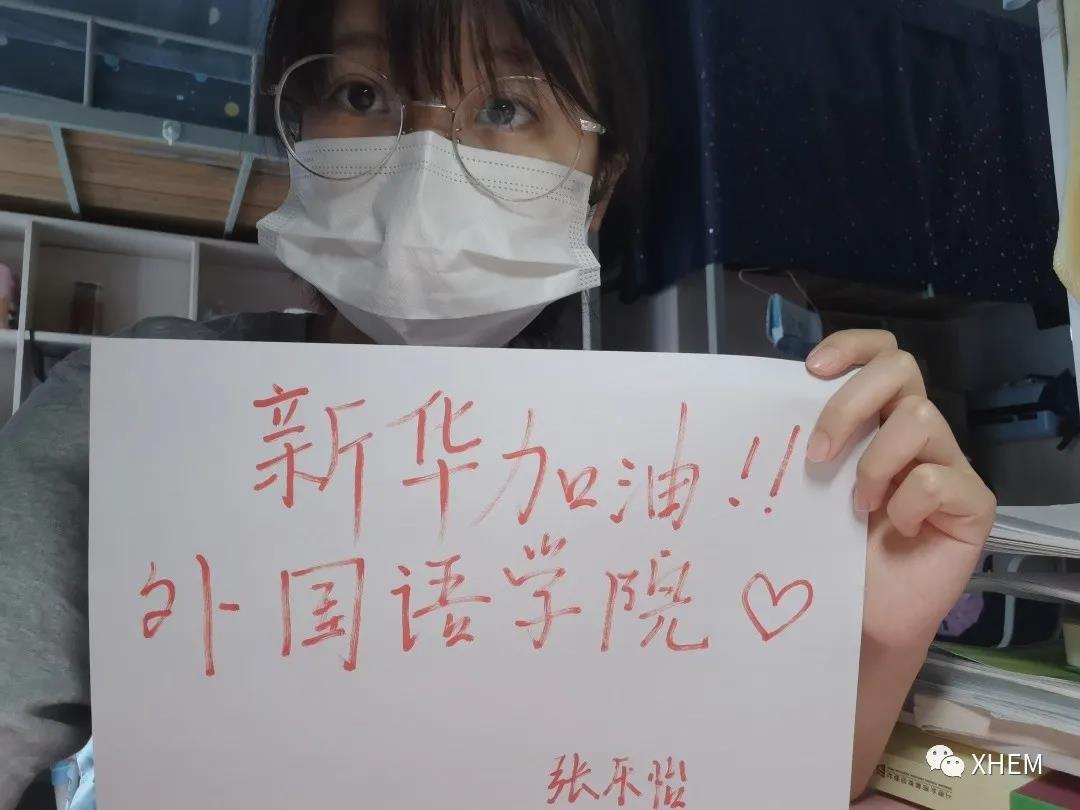 新华加油!!
外国语学院♡
张乐怡
XHEM